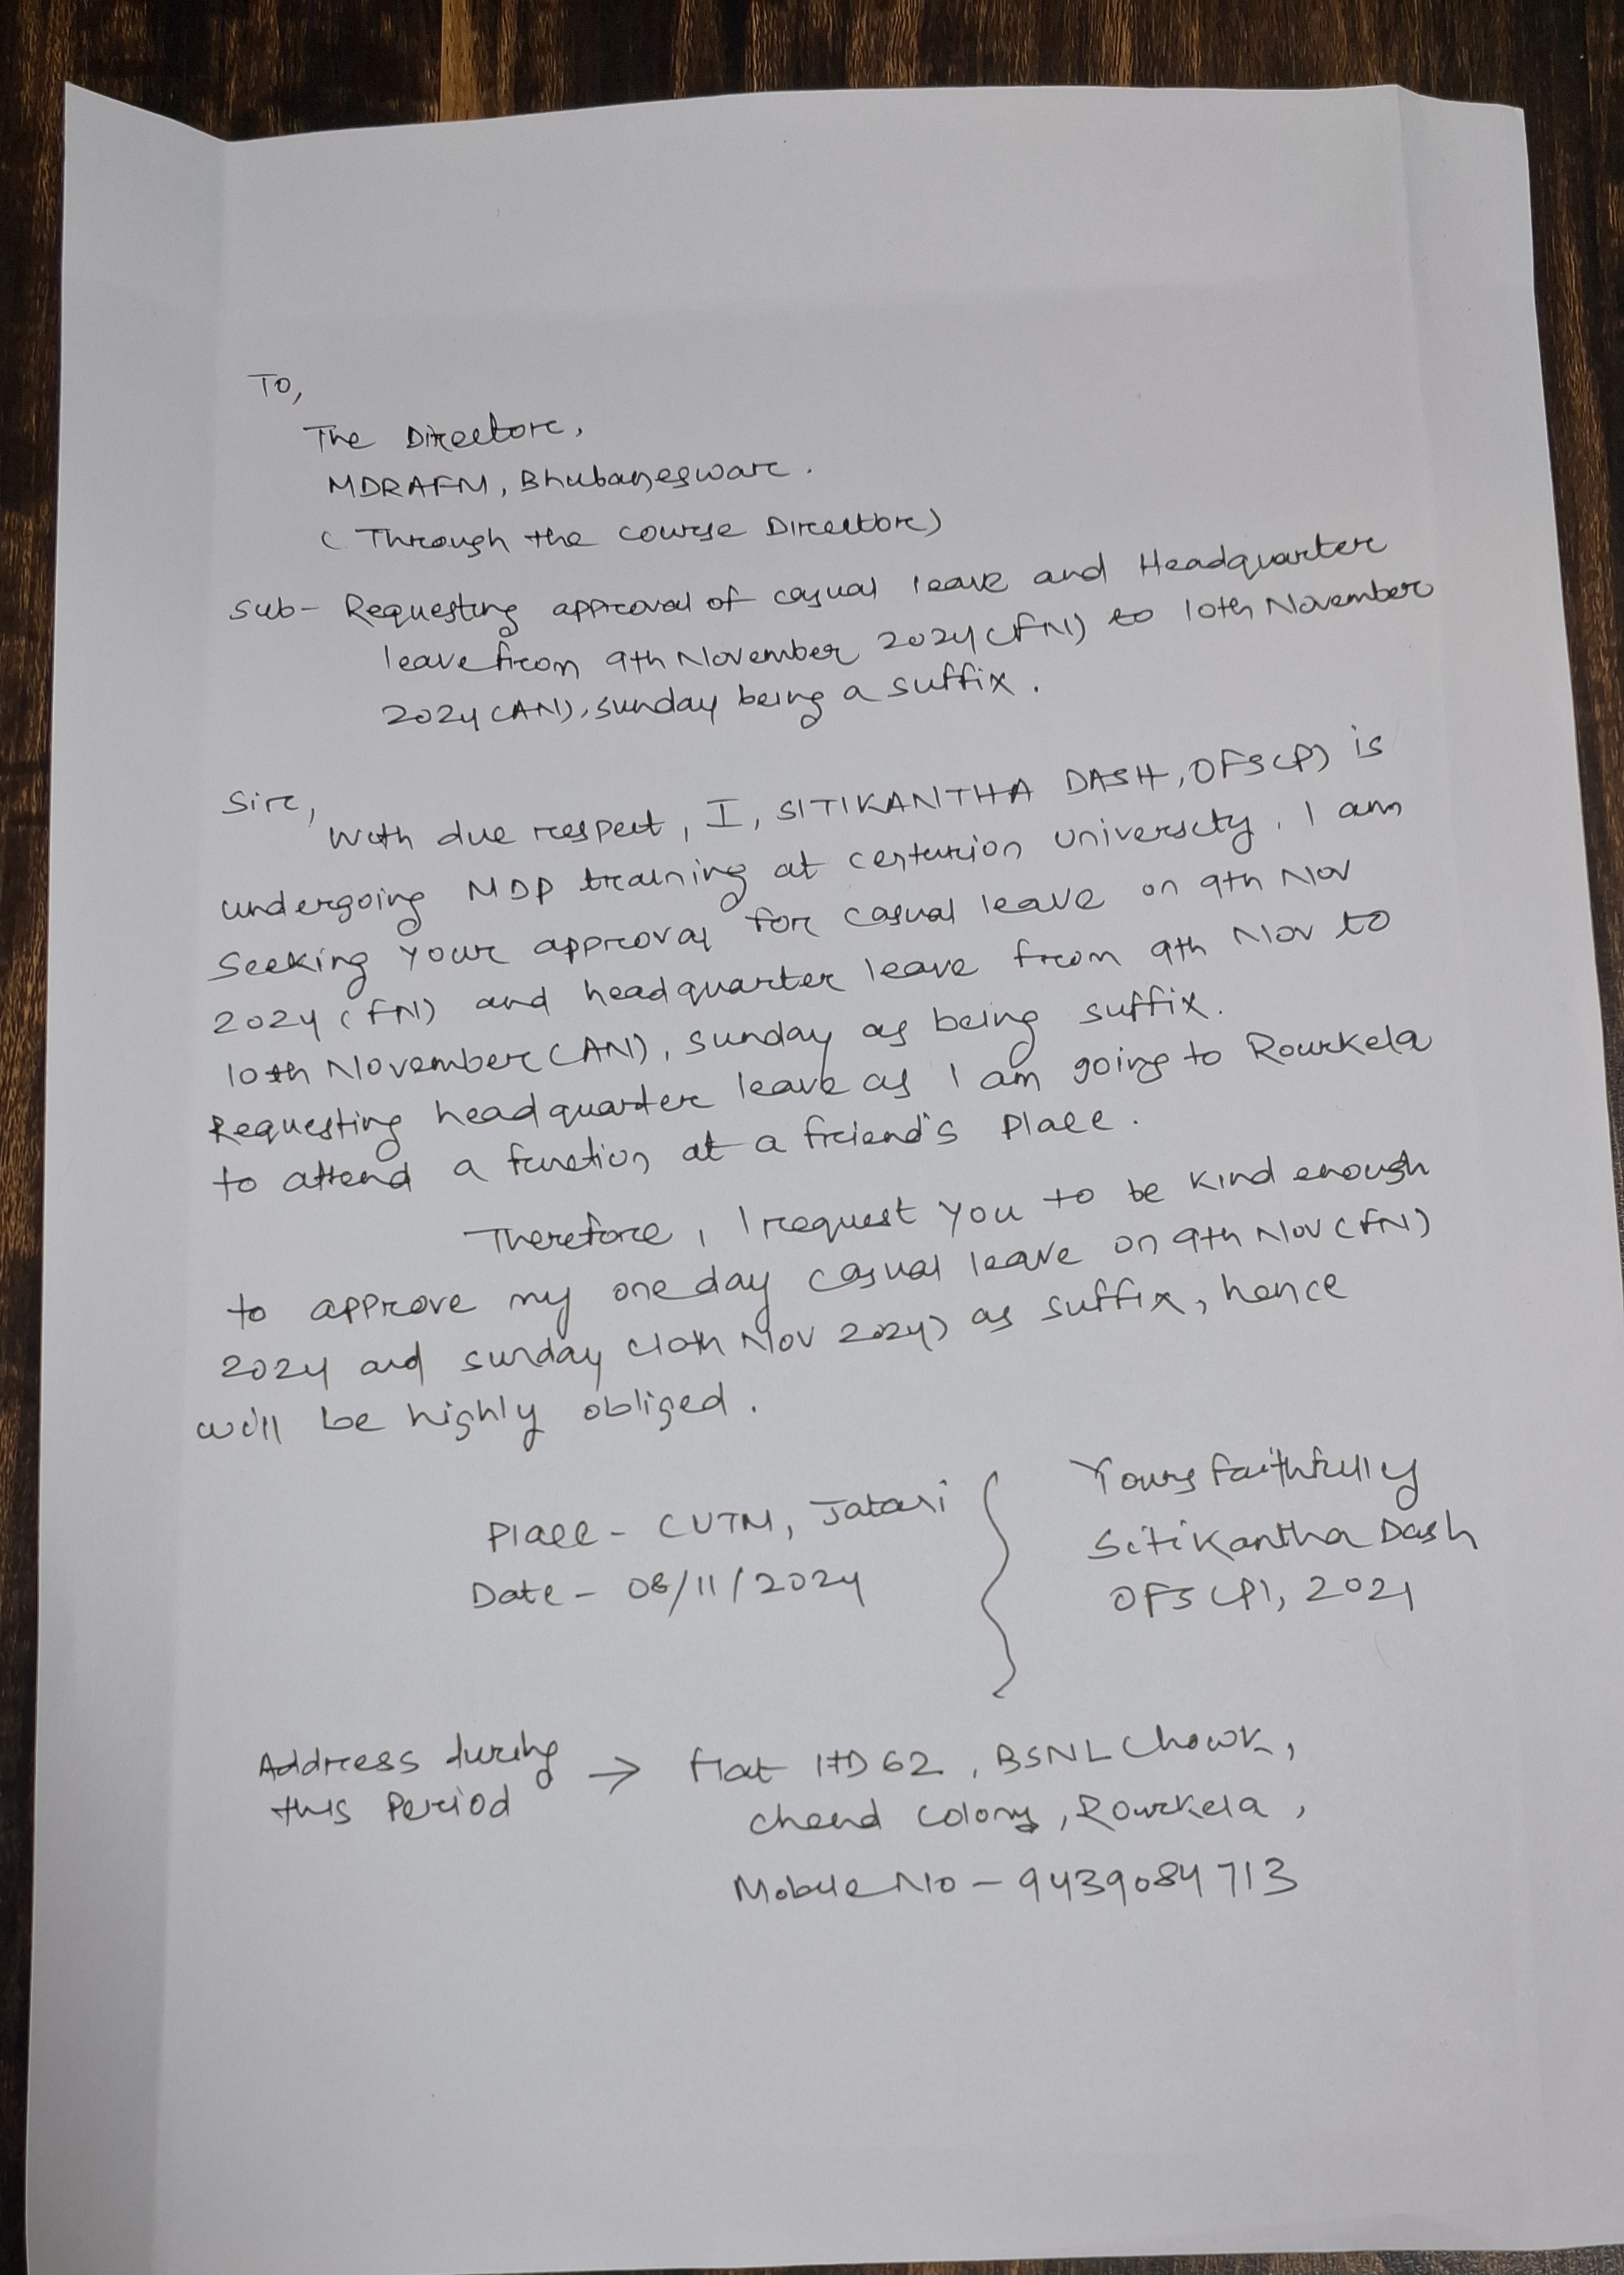 To,
The Director,
MDRAFM, Bhubaneswar.
(Through the course Director)
Sub- Requesting approval of casual leave and Headquarter
leave from 9th November 2024 (FN) to 10th November
2024 (AN), sunday being a suffix.
Sir,
With due respect, I, SITIKANTHA DASH, OFS(P) is
undergoing MDP training at centurion university. I am
Seeking your approval for casual leave on 9th Nov
2024 (FN) and headquarter leave from 9th Nov to
10th November (AN), sunday as being suffix.
Requesting headquarter leave as I am going to Rourkela
to attend a function at a friend's place.
Therefore, I request you to be kind enough
to approve my one day casual leave on 9th Nov (FN)
2024 and sunday (10th Nov 2024) as suffix, hence
will be highly obliged.
Place - CUTM, Jatani
Date - 08/11/2024
Yours faithfully
Sitikantha Dash
OFS (P), 2021
Address during
this Period → flat HD 62, BSNL Chowk,
chend colony, Rourkela,
Mobile No - 9439084713